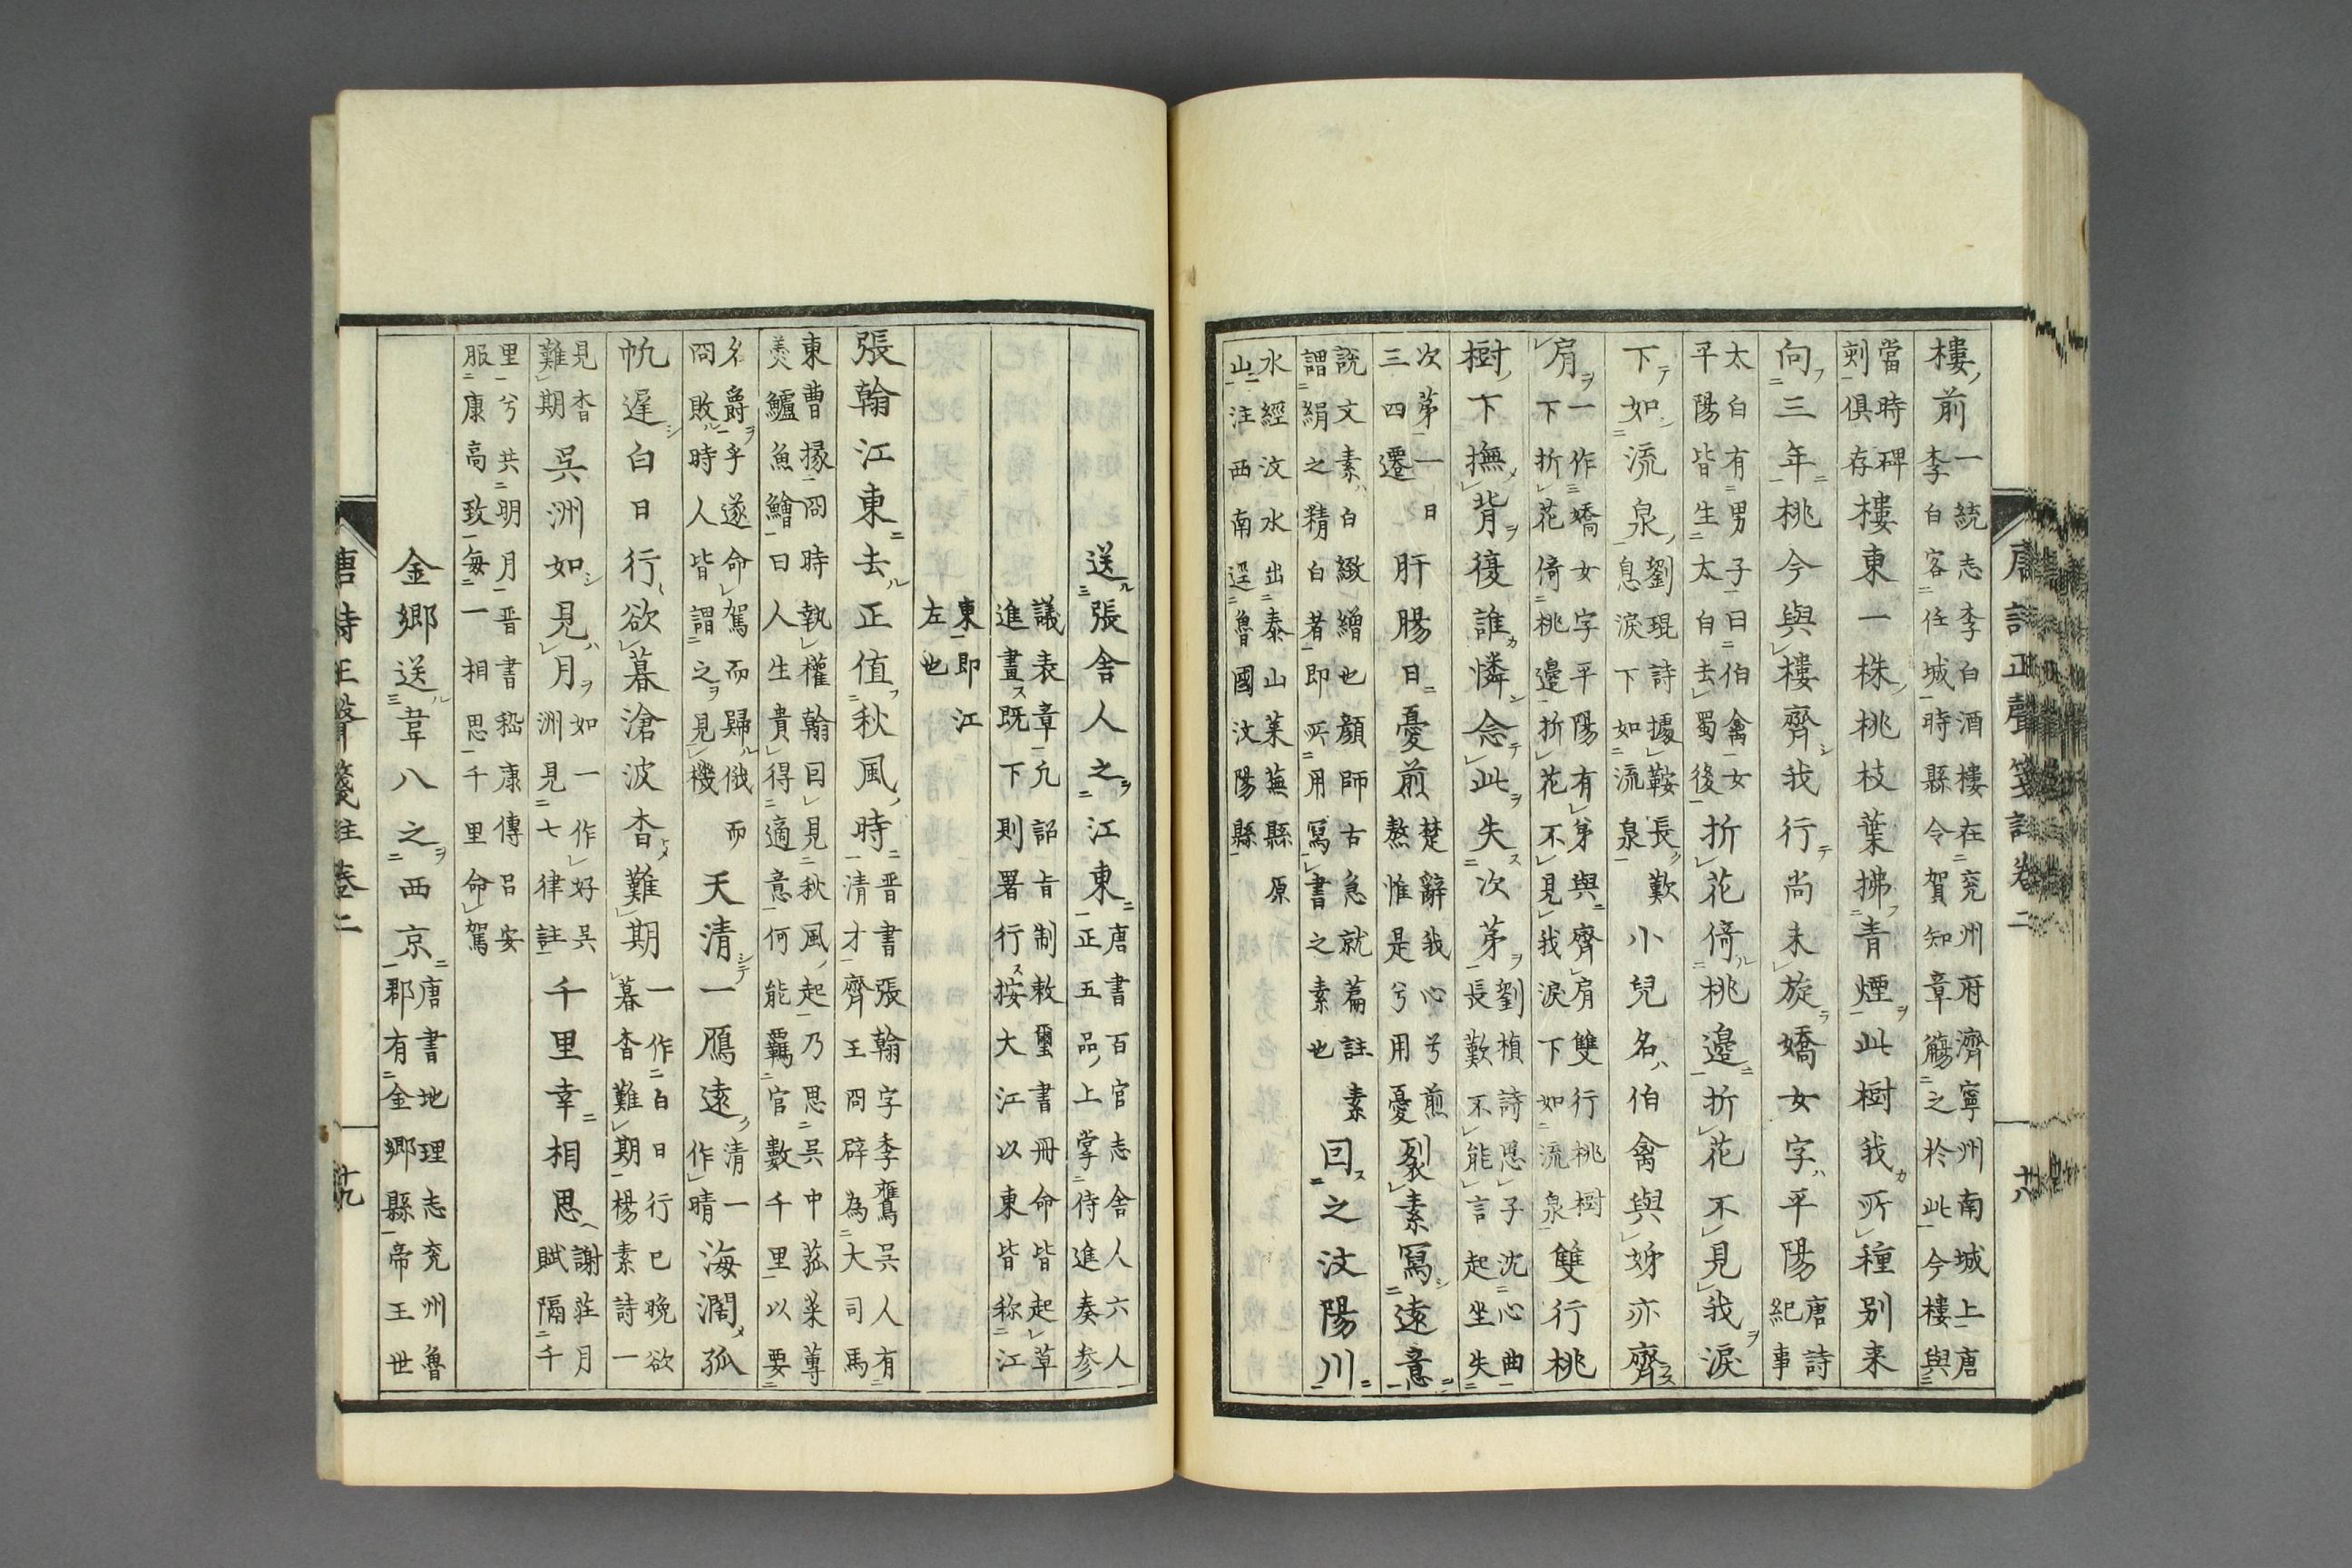 樓前一統志李白酒樓在兗州府濟寧州南城上唐
李白客任城時縣令賀知章觴之於此今樓與
當時碑
刻俱存樓東一株桃枝葉拂青煙此樹我所種別来
向三年桃今與樓齊我行尚未旋嬌女字平陽唐詩
紀事
太白有男子曰伯禽女
平陽皆生太白去蜀後折花倚桃邊折花不見我淚
下如流泉劉琨詩據鞍長歎
息淚下如流泉小兒名伯禽與姊亦齊
肩一作嬌女字平陽有弟與齊肩雙行桃樹
下折花倚桃邊折花不見我淚下如流泉雙行桃
樹下撫背復誰憐念此失次苐劉楨詩愚子沈心曲
長歎不能言起坐失
次苐一日
三四遷肝腸日憂煎楚辭我心兮煎
熬惟是兮用憂裂素寫遠意
說文素白緻繒也顔師古急就篇註素
謂絹之精白者即所用寫書之素也回之汶陽川
水經汶水出泰山莱蕪縣原
山注西南逕魯國汶陽縣
唐詩正聲箋註卷二 十八
送張舍人之江東唐書百官志舍人六人
正五品上掌侍進奏参
議表章凢詔旨制敕璽書冊命皆起草
進畫既下則署行按大江以東皆称江
東即江
左也
張翰江東去正值秋風時晋書張翰字季鷹呉人有
清才齊王冏辟為大司馬
東曹掾冏時執權翰曰見秋風起乃思呉中菰菜蓴
羮鱸魚鱠曰人生貴得適意何能羈官數千里以要
名爵乎遂命駕而歸俄而
冏敗時人皆謂之見機天清一鴈遠清一
作晴海濶孤
帆遅白日行欲暮滄波杳難期一作白日行已晩欲
暮杳難期楊素詩一
見杳
難期呉洲如見月如一作好呉
洲見七律註千里幸相思謝莊月
賦隔千
里兮共明月晋書嵆康傳呂安
服康高致毎一相思千里命駕
金鄉送韋八之西京唐書地理志兗州魯
郡有金鄉縣帝王世
唐詩正聲箋註卷二 十九